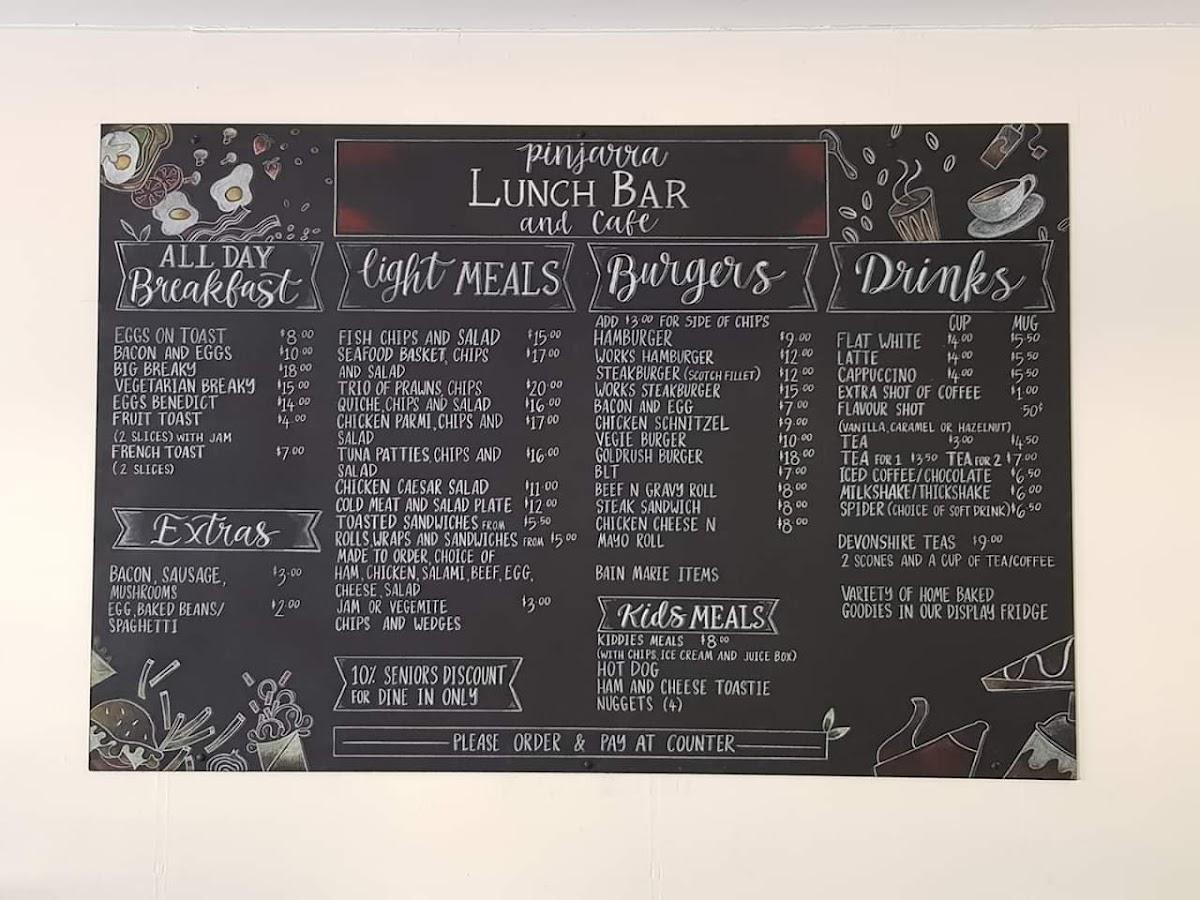 pinjarra
LUNCH BAR
and Cafe
ALL DAY
Breakfast
EGGS ON TOAST $8.00
BACON AND EGGS $10.00
BIG BREAKY $18.00
VEGETARIAN BREAKY $15.00
EGGS BENEDICT $14.00
FRUIT TOAST $4.00
(2 SLICES) WITH JAM
FRENCH TOAST $7.00
(2 SLICES)
Extras
BACON, SAUSAGE, $3.00
MUSHROOMS
EGG, BAKED BEANS/ $2.00
SPAGHETTI
light MEALS
FISH CHIPS AND SALAD $15.00
SEAFOOD BASKET, CHIPS $17.00
AND SALAD
TRIO OF PRAWNS, CHIPS $20.00
QUICHE, CHIPS AND SALAD $16.00
CHICKEN PARMI, CHIPS AND $17.00
SALAD
TUNA PATTIES, CHIPS AND $16.00
SALAD
CHICKEN CAESAR SALAD $11.00
COLD MEAT AND SALAD PLATE $12.00
TOASTED SANDWICHES FROM $5.50
ROLLS, WRAPS AND SANDWICHES FROM $5.00
MADE TO ORDER, CHOICE OF
HAM, CHICKEN, SALAMI, BEEF, EGG,
CHEESE, SALAD
JAM OR VEGEMITE $3.00
CHIPS AND WEDGES
10% SENIORS DISCOUNT
FOR DINE IN ONLY
Burgers
ADD $3.00 FOR SIDE OF CHIPS
HAMBURGER $9.00
WORKS HAMBURGER $12.00
STEAKBURGER (SCOTCH FILLET) $12.00
WORKS STEAKBURGER $15.00
BACON AND EGG $7.00
CHICKEN SCHNITZEL $9.00
VEGIE BURGER $10.00
GOLDRUSH BURGER $18.00
BLT $7.00
BEEF N GRAVY ROLL $8.00
STEAK SANDWICH $8.00
CHICKEN CHEESE N $8.00
MAYO ROLL
BAIN MARIE ITEMS
Kids MEALS
KIDDIES MEALS $8.00
(WITH CHIPS, ICE CREAM AND JUICE BOX)
HOT DOG
HAM AND CHEESE TOASTIE
NUGGETS (4)
Drinks
CUP MUG
FLAT WHITE $4.00 $5.50
LATTE $4.00 $5.50
CAPPUCCINO $4.00 $5.50
EXTRA SHOT OF COFFEE $1.00
FLAVOUR SHOT .50¢
(VANILLA, CARAMEL OR HAZELNUT)
TEA $3.00 $4.50
TEA FOR 1 $3.50 TEA FOR 2 $7.00
ICED COFFEE/CHOCOLATE $6.50
MILKSHAKE/THICKSHAKE $6.00
SPIDER (CHOICE OF SOFT DRINK) $6.50
DEVONSHIRE TEAS $9.00
2 SCONES AND A CUP OF TEA/COFFEE
VARIETY OF HOME BAKED
GOODIES IN OUR DISPLAY FRIDGE
PLEASE ORDER & PAY AT COUNTER